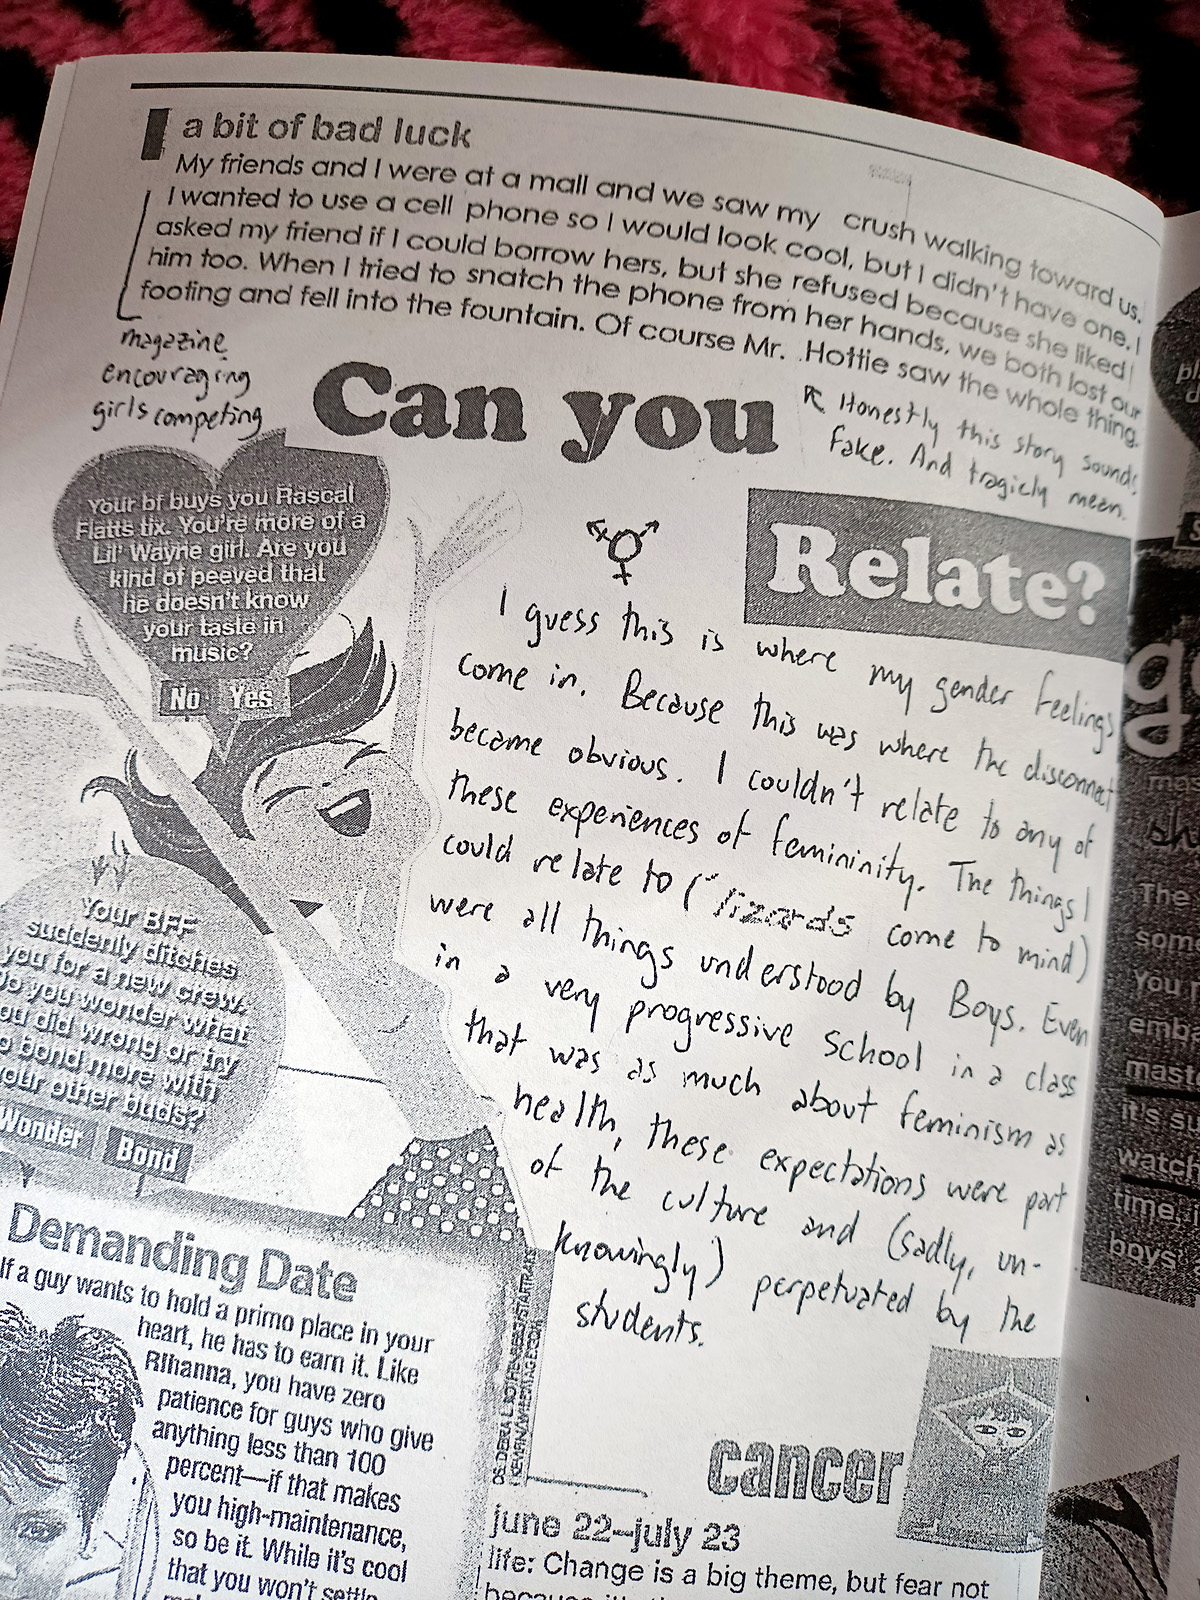 a bit of bad luck
My friends and I were at a mall and we saw my crush walking toward us.
I wanted to use a cell phone so I would look cool, but I didn't have one. I
asked my friend if I could borrow hers, but she refused because she liked
him too. When I tried to snatch the phone from her hands, we both lost our
footing and fell into the fountain. Of course Mr. Hottie saw the whole thing.
magazine
encouraging
girls competing
Can you
Relate?
Honestly this story sounds
fake. And tragicly mean.
Your bf buys you Rascal
Flatts tix. You're more of a
Lil' Wayne girl. Are you
kind of peeved that
he doesn't know
your taste in
music?
No Yes
I guess this is where my gender feelings
come in. Because this was where the disconnect
became obvious. I couldn't relate to any of
these experiences of femininity. The things I
could relate to ( lizards come to mind)
were all things understood by Boys. Even
in a very progressive school in a class
that was as much about feminism as
health, these expectations were part
of the culture and (sadly, un-
knowingly) perpetuated by the
students.
Your BFF
suddenly ditches
you for a new crew.
Do you wonder what
you did wrong or try
to bond more with
your other buds?
Wonder Bond
Demanding Date
If a guy wants to hold a primo place in your
heart, he has to earn it. Like
Rihanna, you have zero
patience for guys who give
anything less than 100
percent—if that makes
you high-maintenance,
so be it. While it's cool
that you won't settle
cancer
june 22–july 23
life: Change is a big theme, but fear not
The
som
You
emb
mast
it's su
watch
time,
boys